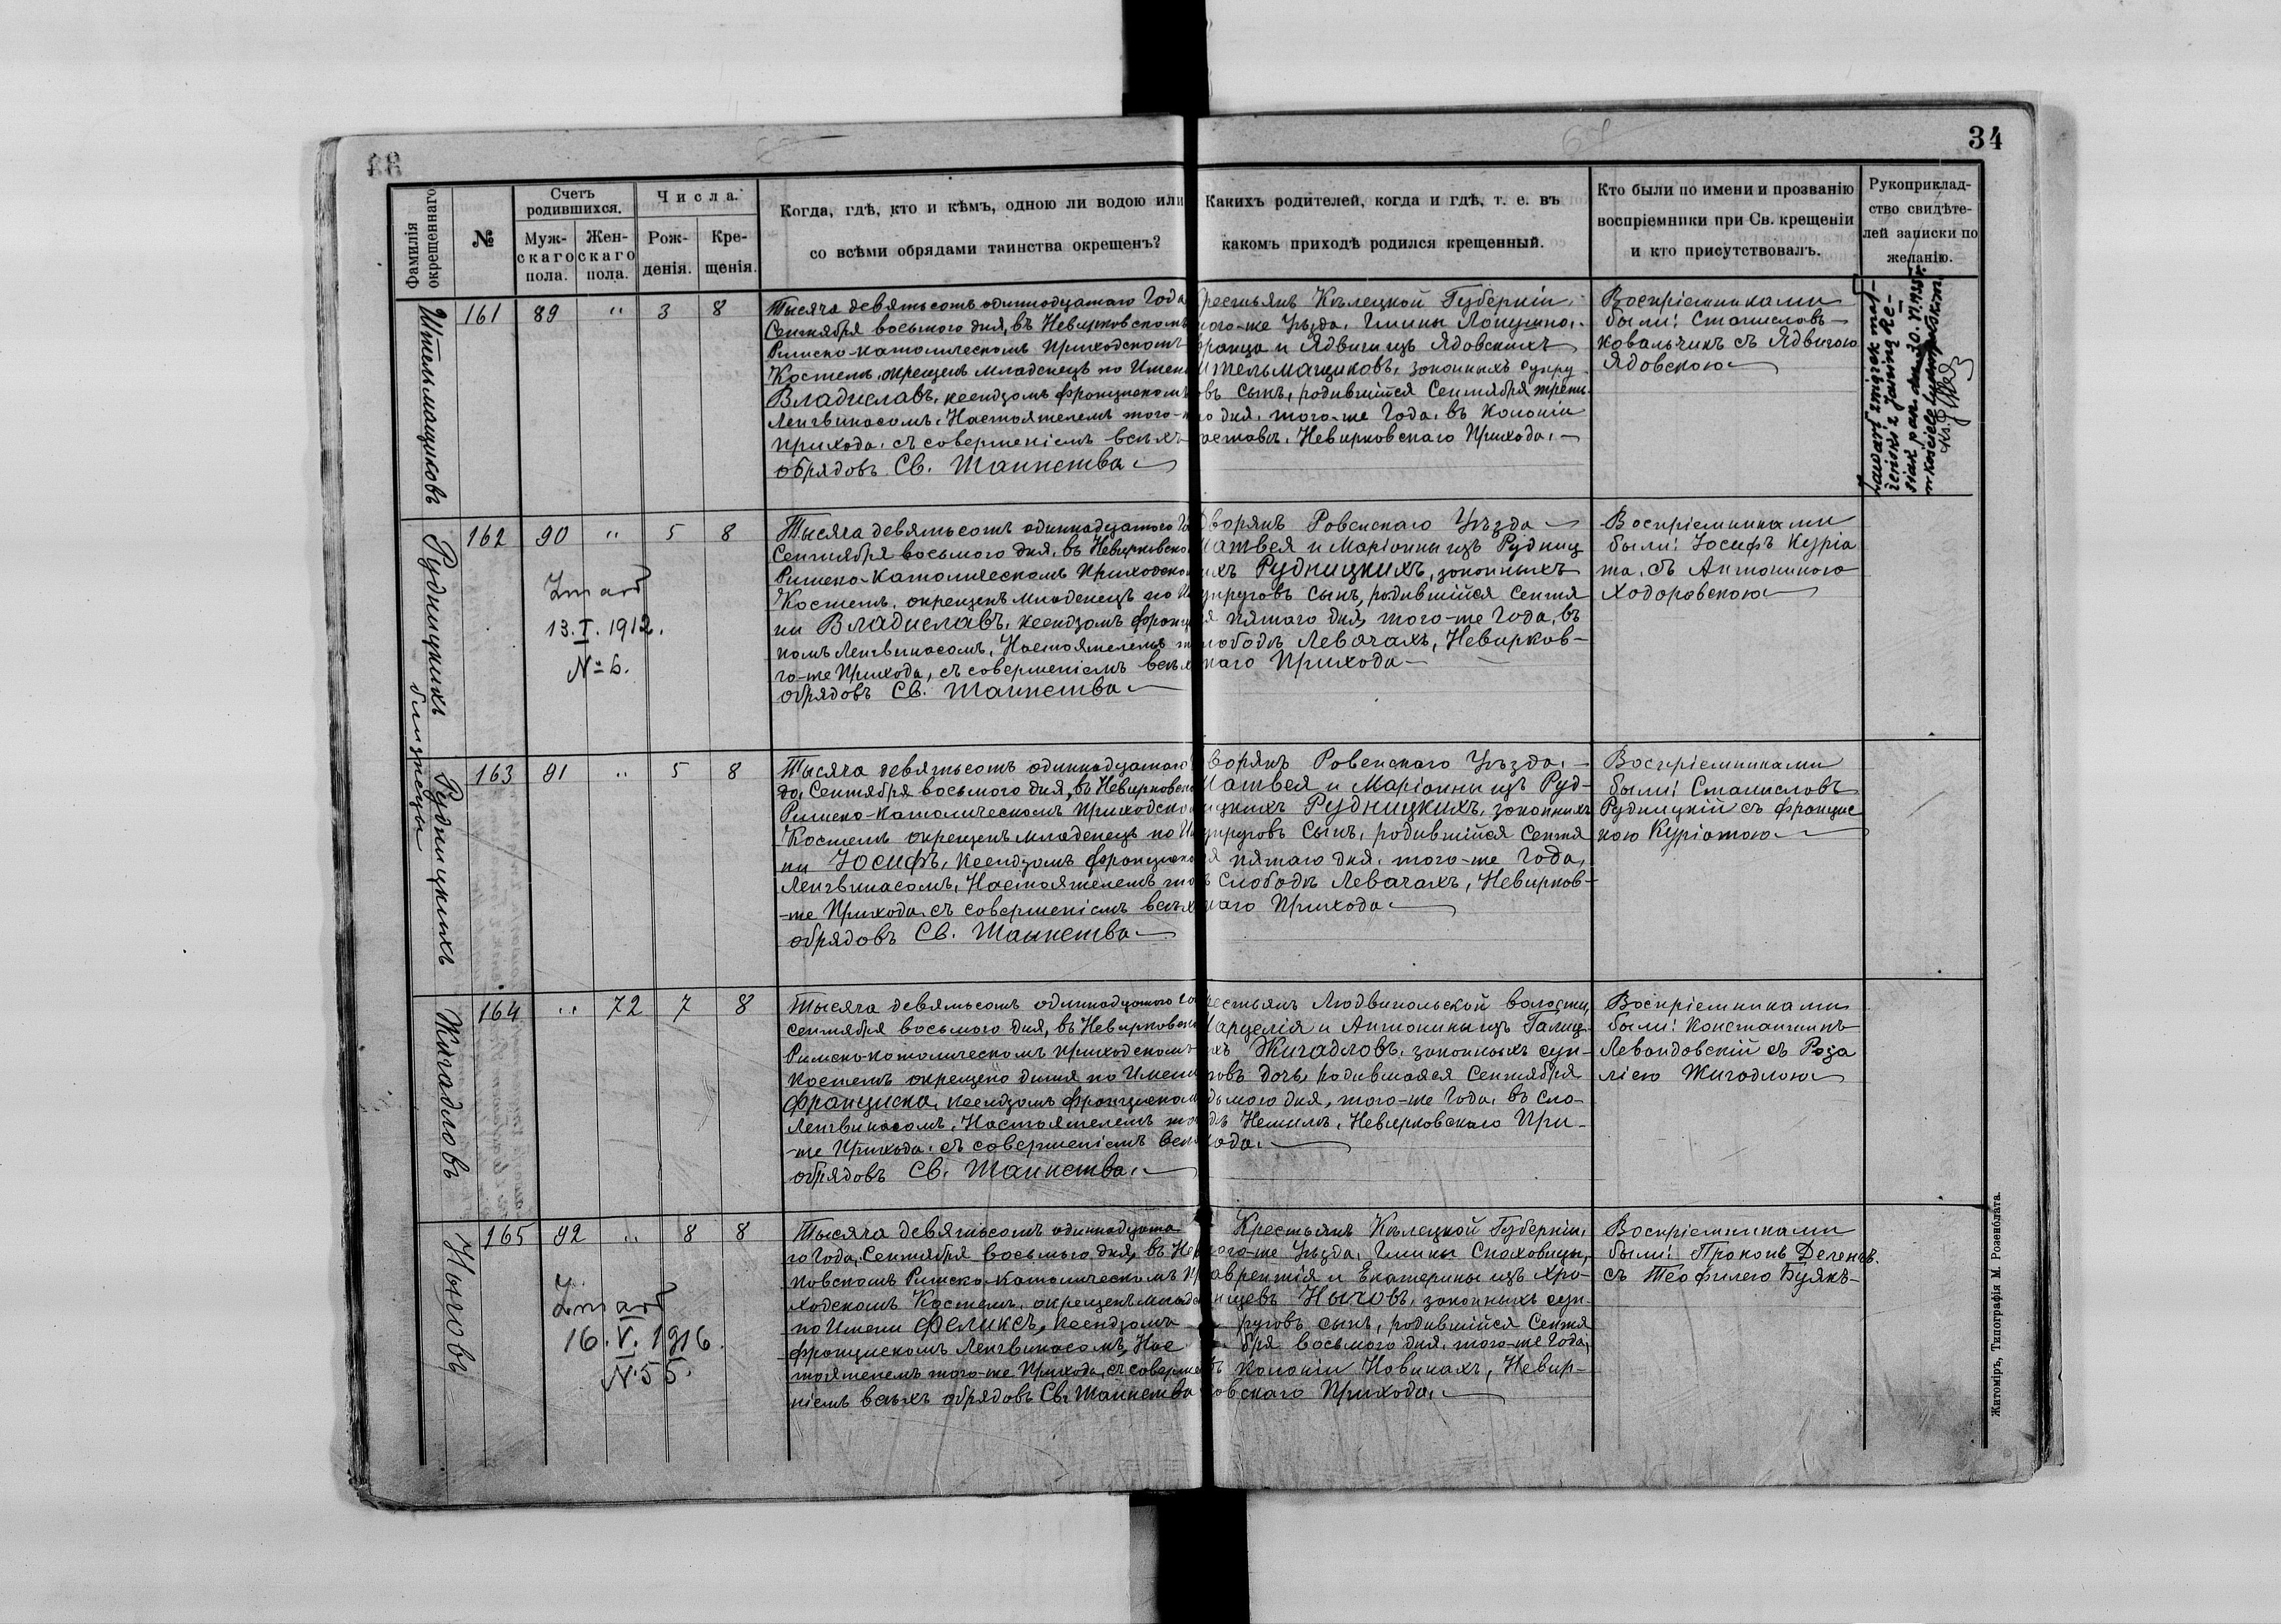 34
Фамилія окрещеннаго
№
Счетъ родившихся.
Муж-
скаго
пола.
Жен-
скаго
пола.
Числа.
Рож-
денія.
Кре-
щенія.
Когда, гдѣ, кто и кѣмъ, одною ли водою или
со всѣми обрядами таинства окрещенъ?
Какихъ родителей, когда и гдѣ, т. е. въ
какомъ приходѣ родился крещенный.
Кто были по имени и прозванію
воспріемники при Св. крещеніи
и кто присутствовалъ.
Рукоприклад-
ство свидѣте-
лей записки по
желанію.
Штельмащиковъ
161 89 " 3 8
Тысяча девятьсотъ одиннадцатаго Года
Сентября восьмого дня, въ Невирковскомъ
Римско-католическомъ Приходскомъ
Костелѣ, окрещенъ младенецъ по Имени
Владиславъ, ксендзомъ Францискомъ
Ленгвинасомъ, Настоятелемъ того-
Прихода, съ совершеніемъ всѣхъ
обрядовъ Св. Таинства
рестьянъ Кѣлецкой Губерніи
того-же Уѣзда, Гмины
Франца и Ядвиги изъ Ядовскихъ
Штельмащиковъ, законныхъ супру
овъ сынъ, родившійся Сентября треть
го дня, того-же Года, въ Колоніи
Невирковскаго Прихода.
Воспріемниками
были: Станиславъ
Ковальчикъ съ Ядвигою
Ядовскою
Zawarł związek mał-
żeński z Janiną
30.VI.1935 r.
w kościele
Рудницкихъ
близнецы
162 90 " 5 8
Zmarł
13.I.1912.
№ 6.
Тысяча девятьсотъ одиннадцатого Го
Сентября восьмого дня, въ Невирковско
Римско-Католическомъ Приходско
Костелѣ, окрещенъ младенецъ по И
ни Владиславъ, ксендзомъ Франци
комъ Ленгвинасомъ, Настоятелемъ т
го-же Прихода, съ совершеніемъ всѣх
обрядовъ Св. Таинства
Дворянъ Ровенскаго Уѣзда
Матвея и Маріанны изъ Рудниц
ихъ Рудницкихъ, законныхъ
упруговъ Сынъ, родившійся Сентя
я пятаго дня, того-же Года, въ
лободѣ Левачахъ, Невирков-
каго Прихода
Воспріемниками
были: Іосифъ Куріа
та, съ Антониною
Ходоровскою
Рудницкихъ
163 91 " 5 8
Тысяча девятьсотъ одиннадцатаго
да, Сентября восьмого дня, въ Невирковско
Римско-Католическомъ Приходско
Костелѣ окрещенъ младенецъ по И
ни Іосифъ, Ксендзомъ Францискo
Ленгвинасомъ, Настоятелемъ то
-же Прихода, съ совершеніемъ всѣх
обрядовъ Св. Таинства
ворянъ Ровенскаго Уѣзда,
Матвея и Маріанны изъ Руд-
ницкихъ Рудницкихъ, законныхъ
упруговъ Сынъ, родившійся Сентя
я пятаго дня, того-же Года,
ъ Слободѣ Левачахъ, Невирков-
каго Прихода.
Воспріемниками
были: Станиславъ
Рудницкій съ Францис
кою Куріатою
Жигадловъ
164 " 72 7 8
Тысяча девятьсотъ одиннадцатого го
Сентября восьмого дня, въ Невирковск
Римско-католическомъ приходскомъ
Костелѣ окрещено дитя по Имени
Франциска, ксендзомъ Францискомъ
Ленгвинасомъ, Настоятелемъ то
-же Прихода, съ совершеніемъ всѣх
обрядовъ Св. Таинства.
рестьянъ Людвипольской волости,
Марцелія и Антонины изъ Галиц-
ихъ Жигадловъ, законныхъ суп-
говъ дочь, родившаяся Сентября
дьмого дня, того-же Года, въ Сло-
дѣ Невирковскаго При-
хода.
Воспріемниками
были: Константинъ
Левандовскій съ Роза
ліею Жигадлою
Ныговъ
165 92 " 8 8
Zmarł
16.V.1916.
N. 55.
Тысяча девятьсотъ одиннадцата
го Года, Сентября восьмого дня, въ Не
ковскомъ Римско-Католическомъ Пр
ходскомъ Костелѣ, окрещенъ младе
по Имени Феликсъ, ксендзомъ
Францискомъ Ленгвинасомъ, Нас
тоятелемъ того-же Прихода, съ соверше
ніемъ всѣхъ обрядовъ Св. Таинства
Крестьянъ Кѣлецкой Губерніи,
того-же Уѣзда, Гмины
Лаврентія и Екатерины изъ Хро-
Ныговъ, законныхъ суп-
руговъ сынъ, родившійся Сентя
бря восьмого дня, того-же Года,
ъ Колоніи Новинахъ, Невир-
овскаго Прихода.
Воспріемниками
были: Прокопъ
съ Теофилею Буякъ
Житоміръ, Типографія М. Розенблата.